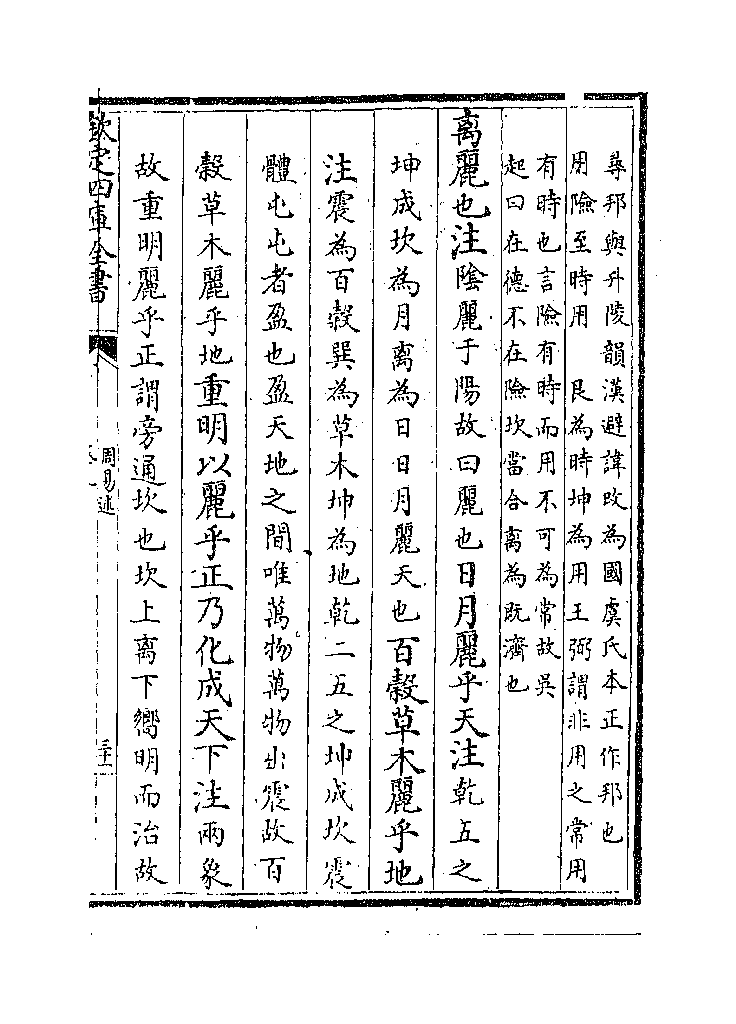 尋邦與升陵韻漢避諱改為國虞氏本正作邦也
用險至時用　艮為時坤為用王弼謂非用之常用
有時也言險有時而用不可為常故吳
起曰在德不在險坎當合离為既濟也
离麗也注陰麗于陽故曰麗也日月麗乎天注乾五之
坤成坎為月离為日日月麗天也百糓草木麗乎地
注震為百糓巽為草木坤為地乾二五之坤成坎震
體屯屯者盈也盈天地之間唯萬物萬物出震故百
糓草木麗乎地重明以麗乎正乃化成天下注兩象
故重明麗乎正謂旁通坎也坎上离下嚮明而治故
欽定四庫全書
周易述
三十一